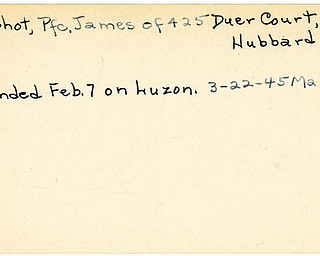 hot, Pfc. James of 425 Duer Court,
Hubbard
nded Feb. 7 on Luzon. 3-22-45 Ma